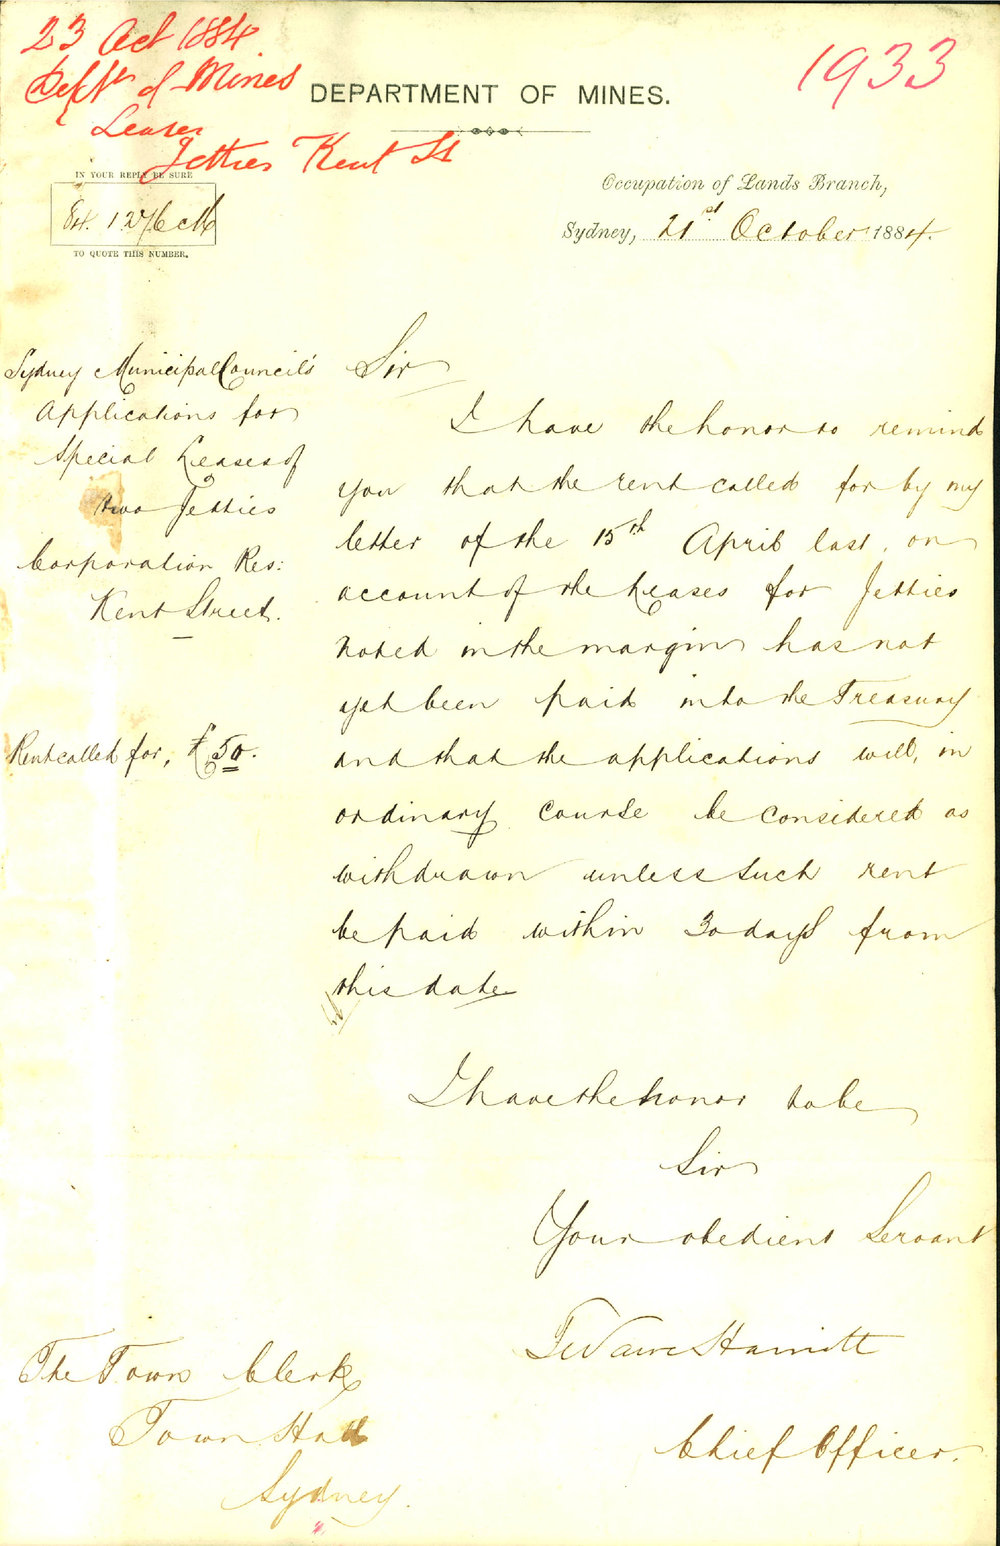 23 Oct 1884
Deptt of Mines
Leases
Jetties Kent St
1933
DEPARTMENT OF MINES.
IN YOUR REPLY BE SURE
84. 1276
TO QUOTE THIS NUMBER.
Occupation of Lands Branch,
Sydney, 21st October 1884.
Sydney Municipal Council's
Applications for
Special Leases of
two Jetties
Corporation Res:
Kent Street.
Rent called for, £50.
Sir
I have the honor to remind
you that the rent called for by my
letter of the 15th April last, on
account of the Leases for Jetties
noted in the margin has not
yet been paid into the Treasury
and that the applications will, in
ordinary course be considered as
withdrawn unless such rent
be paid within 30 days from
this date
I have the honor to be
Sir
Your obedient Servant
Harriott
Chief Officer.
The Town Clerk
Town Hall
Sydney.